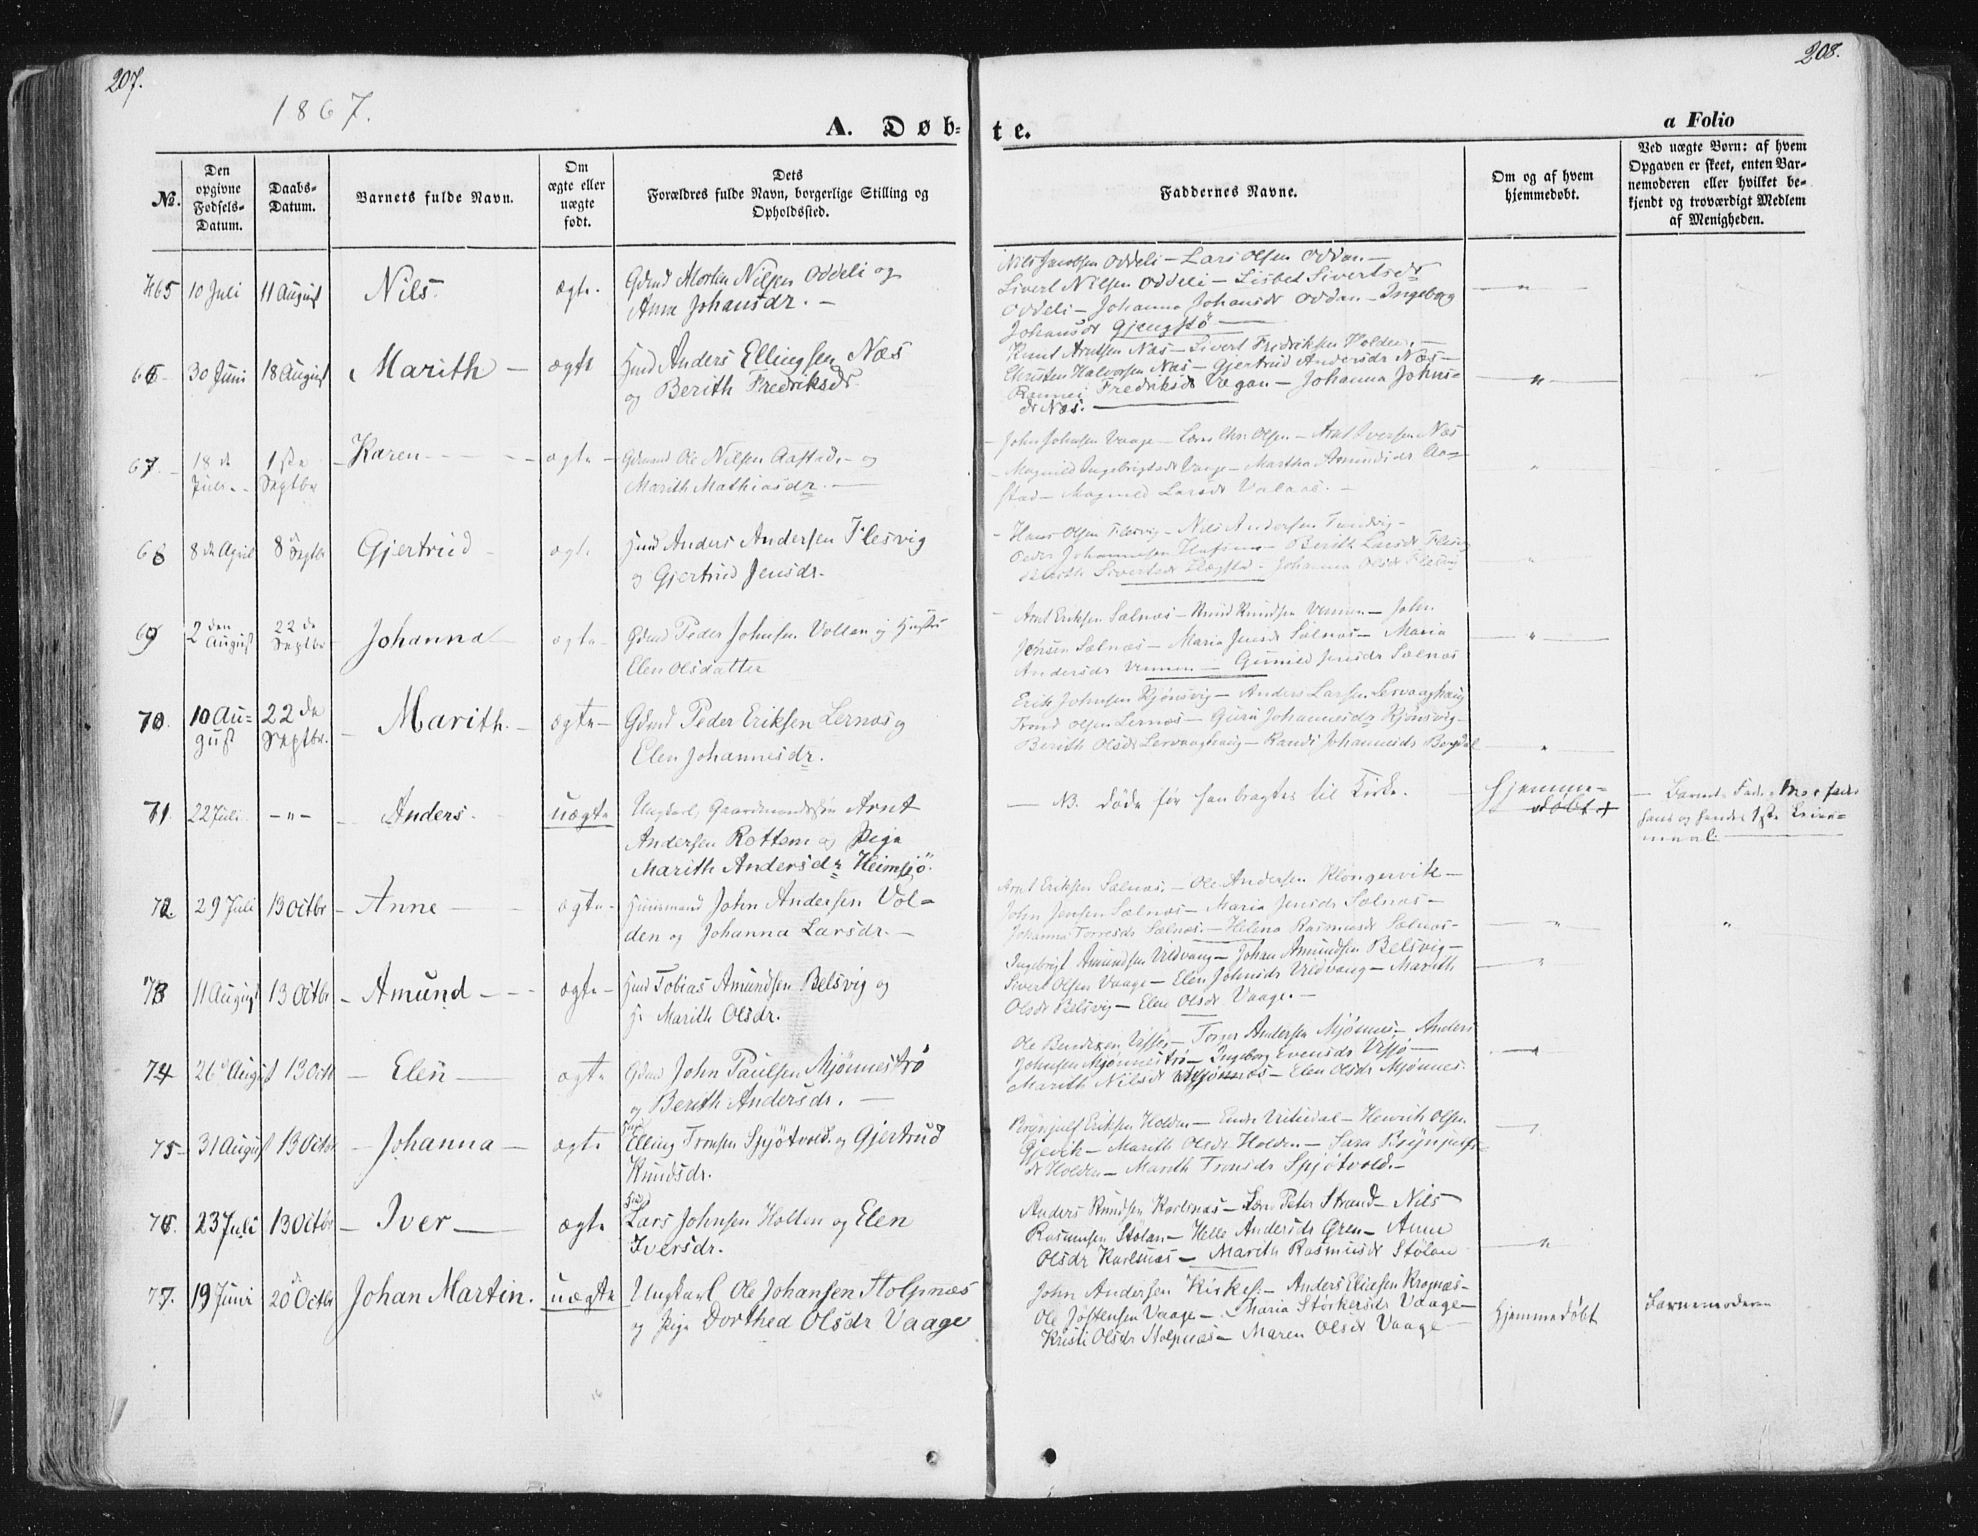 207.
208.
1867.
A. Døb-
te.
a Folio
No.
Den opgivne Fødsels-Datum.
Daabs-Datum.
Barnets fulde Navn.
Om ægte eller uægte født.
Dets Forældres fulde Navn, borgerlige Stilling og Opholdssted.
Faddernes Navne.
Om og af hvem hjemmedøbt.
Ved uægte Børn: af hvem Opgaven er skeet, enten Barnemoderen eller hvilket bekjendt og troværdigt Medlem af Menigheden.
65 10 Juli 11 August Nils. ægte. Gdmd Morten Nilsen Oddeli og
Anne Johansdr. —
Nils Jacobsen Oddeli — Lars Olsen Oddan —
Sivert Nilsen Oddeli — Lisbet Sivertsdr
Oddeli — Johanna Johansdr Oddan — Ingeborg
Johansdr Gjengstö —
66 30 Juni 18 August Marith — ægte Hmd Anders Ellingsen Næs
og Berith Fredriksdr
Knut Arntsen Næs — Sivert Fredriksen Volden. —
Christen Halvorsen Næs — Gjertrud Andersdr Næs —
Fredriksdr Vægan — Johanna Johns-
dr Næs. —
67. 18 de Juli 1ste Septbr Karen — ægte — Gdmand Ole Nilsen Aastad. — og
Marith Mathiasdr. —
John Johnsen Vaage — Olsen — Arnt Iversen Næs
Magnild Ingebrigtsdr Vaage — Martha Amundsdr Aa-
stad — Magnild Larsdr
68 8 de April 8 Septbr Gjertrud — ægte Hmd Anders Andersen Flesvig
og Gjertrud Jensdr.
Hans Olsen Flesvig — Nils Andersen
Peder Johannesen — Berith Larsdr
Sivertsdr — Johanna Olsdr
69 2 den August 22 de Septbr Johanna ægte — Gdmd Peder Johnsen Vollan og Hustru
Elen Olsdatter
Arnt Eriksen Sælnæs — Knud Knudsen Vennen — John
Jensen Sælnæs — Maria Jensdr Sælnæs — Maria
Andersdr Vennen — Gunild Jensdr Sælnæs
70. 10 Au-gust 22 de Septbr. — Marith. — ægte — Gdmd Peder Eriksen Lernæs og
Elen Johannesdr.
Erik Johnsen Kjönsvig — Anders Larsen Lervaaghaug
Trond Olsen Lernæs — Guru Johannesdr Kjönsvig —
Berith Olsdr Lervaaghaug — Randi Johannesdr
71. 22 Juli — " — — Anders. uægte Ungkarl, Gaardmandssøn Arnt
Andersen Rottem og Pige
Marith Andersdr Heimsjö.
— NB. døde før han bragtes til Kirke. —
Hjemme-
døbt
— Barnets Fader
hans og hendes 1ste Leier-
maal.
72. 29 Juli 13 Octbr — Anne — ægte — Huusmand John Andersen Vol-
den og Johanna Larsdr. —
Arnt Eriksen Sælnæs. — Ole Andersen Klöngervik —
John Jensen Sælnæs — Maria Jensdr Sælnæs —
Johanna Torresdr Sælnæs. — Helena Rasmusdr Sælnæs —
73 11 August 13 Octbr — Amund — ægte — Hmd Tobias Amundsen Belsvig og
H. Marith Olsdr.
Ingebrigt Amundsen Vildvang — Johan Amundsen Belsvig —
Sivert Olsen Vaage — Elen Johnsdr Vildvang — Marith
Olsdr Belsvig — Elen Olsdr Vaage. —
74 26 August 13 Octb — Elen — ægte Gdmd John Paulsen Mjönneströ
og Berith Andersdr. —
Ole Bendixen Vissjö — Torger Andersen Mjönnes — Anders
Johnsen Mjönneströ — Ingeborg Evensdr Vissjö —
Marith Nilsdr Mjönnes — Elen Olsdr Mjönnes.
75 — 31 August 13 Octbr. — Johanna — ægte Elling Tronsen Spjötvold. og Gjertrud
Knudsdr.
Brynjulf Eriksen Holden — Endre Vitisdal — Henrik Olsen
Gjevik — Marith Olsdr Holden — Sara Brynjulfs-
dr Holden — Marith Tronsdr Spjötvold. —
76. 23 Juli 13 Octbr — Iver — ægte Lars Johnsen Holten og Elen
Iversdr.
Anders Knudsen Karlsnæs — Peter Strand — Nils
Rasmusen Stölan — Helle Andersdr Gren — Anne
Olsdr Karlsnæs — Maritha Rasmusdr Stölan
77. 19 Juni 20 Octbr Johan Martin. uægte Ungkarl Ole Johansen Stolpnæs
og Pige Dorthea Olsdr Vaage
John Andersen Kirkes. — Anders Eliasen Krognæs —
Ole Jöstensen Vaage — Maria Störkersdr Vaage —
Kristi Olsdr Stolpnæs — Maren Olsdr Vaage —
Hjemmedøbt
Barnemoderen